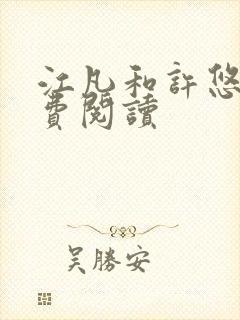 江凡和許悠
費閱讀
吳勝安